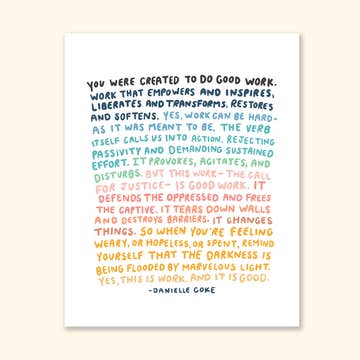 YOU WERE CREATED TO DO GOOD WORK.
WORK THAT EMPOWERS AND INSPIRES,
LIBERATES AND TRANSFORMS, RESTORES
AND SOFTENS. YES, WORK CAN BE HARD-
AS IT WAS MEANT TO BE. THE VERB
ITSELF CALLS US INTO ACTION, REJECTING
PASSIVITY AND DEMANDING SUSTAINED
EFFORT. IT PROVOKES, AGITATES, AND
DISTURBS. BUT THIS WORK-THE CALL
FOR JUSTICE- IS GOOD WORK. IT
DEFENDS THE OPPRESSED AND FREES
THE CAPTIVE. IT TEARS DOWN WALLS
AND DESTROYS BARRIERS. IT CHANGES
THINGS. SO WHEN YOU'RE FEELING
WEARY, OR HOPELESS, OR SPENT, REMIND
YOURSELF THAT THE DARKNESS IS
BEING FLOODED BY MARVELOUS LIGHT.
YES, THIS IS WORK. AND IT IS GOOD.
-DANIELLE COKE